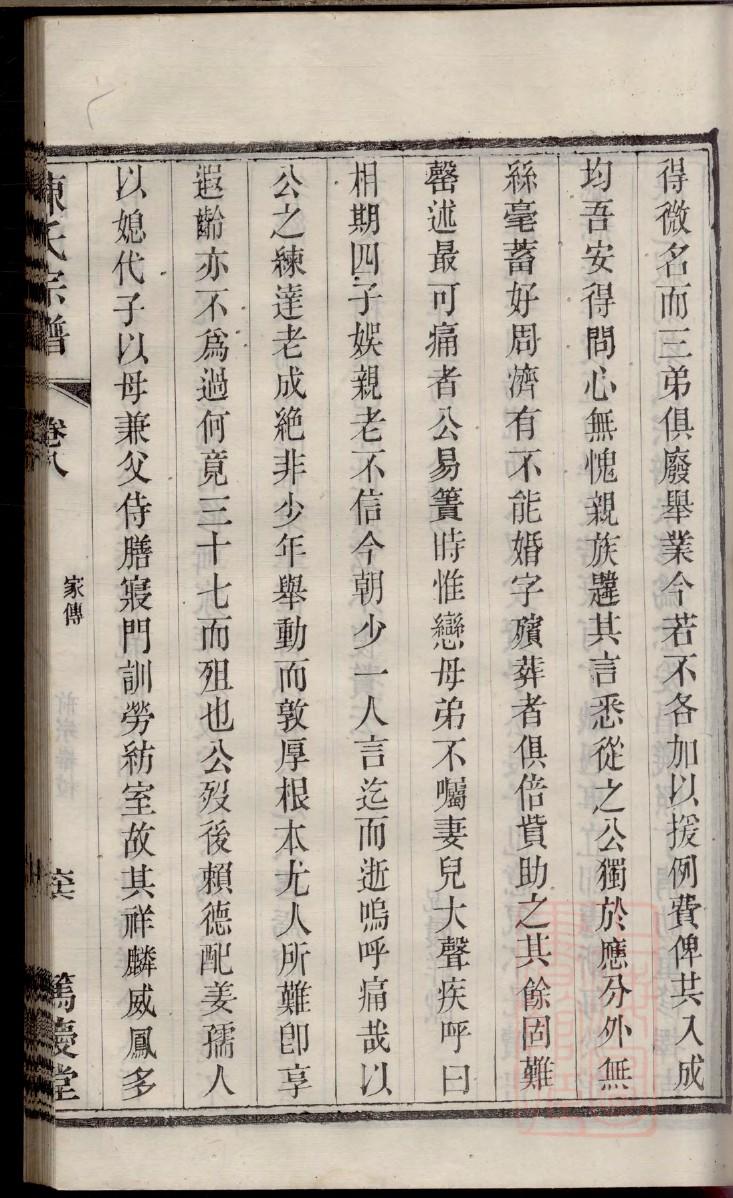 得微名而三弟俱廢舉業今若不各加以援例費俾共入成
均吾安得問心無愧親族韙其言悉從之公獨於應分外無
絲毫蓄好周濟有不能婚字殯葬者俱倍貲助之其餘固難
罄述最可痛者公易簀時惟戀母弟不囑妻兒大聲疾呼曰
相期四子娛親老不信今朝少一人言迄而逝嗚呼痛哉以
公之練達老成絶非少年舉動而敦厚根本尤人所難卽享
遐齡亦不爲過何竟三十七而殂也公歿後賴德配姜孺人
以媳代子以母兼父侍膳寢門訓勞紡室故其祥麟威鳳多
陳氏宗譜
卷八
家傳
篤慶堂